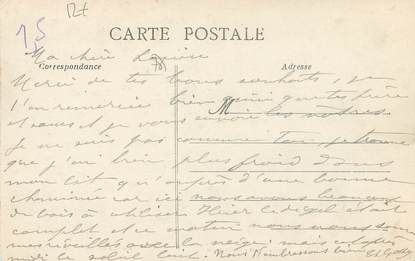 15
CARTE POSTALE
Ma chère Louise
Correspondance
Adresse
Merci de tes bons souhaits, je
t'en remercie bien ainsi que tes frère
et sœurs et je vous envoie les nôtres.
Je ne suis pas comme toi, je trouve
que j'ai bien plus froid dans
mon lit qu'auprès d'une bonne
cheminée car ici nous avons beaucoup
de bois à utiliser. Hier le dégel était
complet et ce matin nous nous sommes
réveillés avec la neige: mais
midi le soleil luit. Nous t'embrassons bien